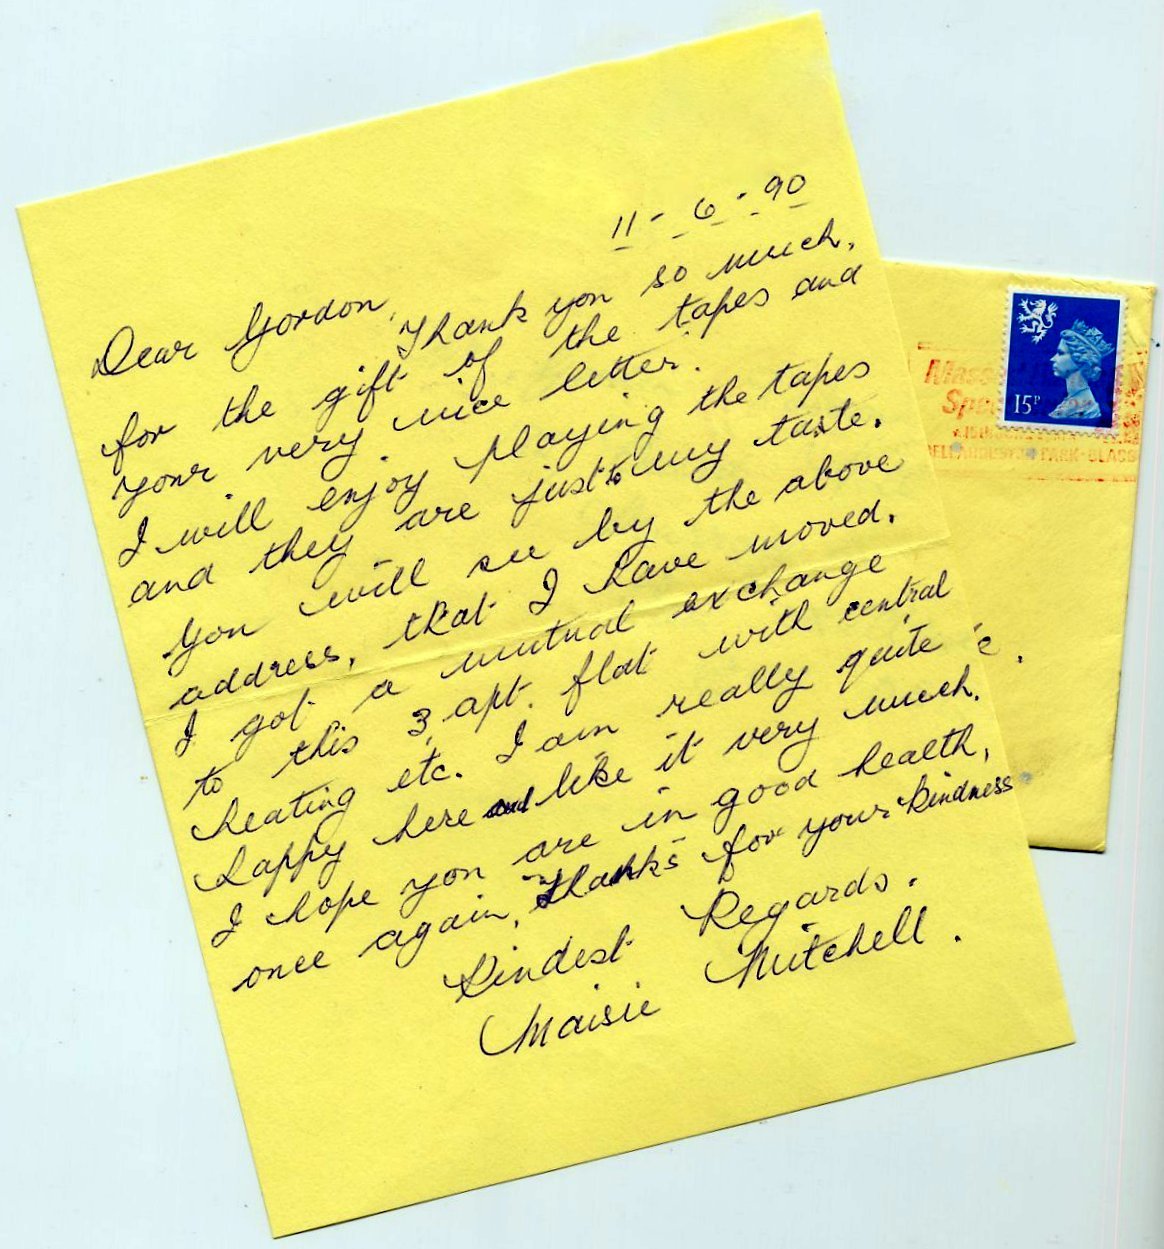 11-6-90
Dear Gordon,
Thank you so much,
for the gift of the tapes and
your very nice letter.
I will enjoy playing the tapes
and they are just to my taste.
You will see by the above
address, that I have moved.
I got a mutual exchange
to this 3 apt. flat with central
heating etc. I am really quite
happy here and like it very much.
I hope you are in good health,
once again, thanks for your kindness
Kindest Regards.
Maisie Mitchell.
15P
PARK-GLASG